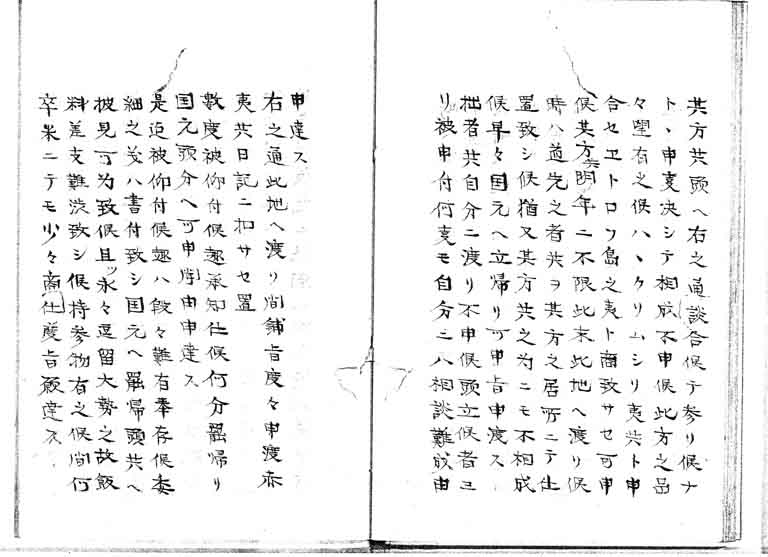 其方共頭ヘ右之通談合候テ参リ候ナ
ト、申夷决シテ相成不申候此方之品
々望有之候ハ、クリムシリ夷共ト申
合セヱトロフ島之夷ト商致サセ可申
候其方共明年ニ不限此末此地ヘ渡リ候
時ハ道先之者共ヲ其方之居所ニテ仕
置致シ候猶又其方共之为ニモ不相成
候早々国元ヘ立帰リ可申旨申渡ス
拙者共自分ニ渡リ不申候頭立候者ヨ
リ被申付何夷モ自分ニハ相談難成由
申達ス
右之通此地ヘ渡リ間鋪旨度々申渡赤
夷共日記ニ扣サセ置
数度被仰付候趣承知仕候何分罷帰リ
国元頭分ヘ可申聞由申達ス
是迄被仰付候趣ハ段々難有奉存候委
細之義ハ書付致シ国元ヘ罷帰頭共ヘ
披見可为致候且ツ永々逗留大勢之故飯
料差支難渋致シ候持参物有之候間何
卒米ニテモ少々商仕度旨願達ス